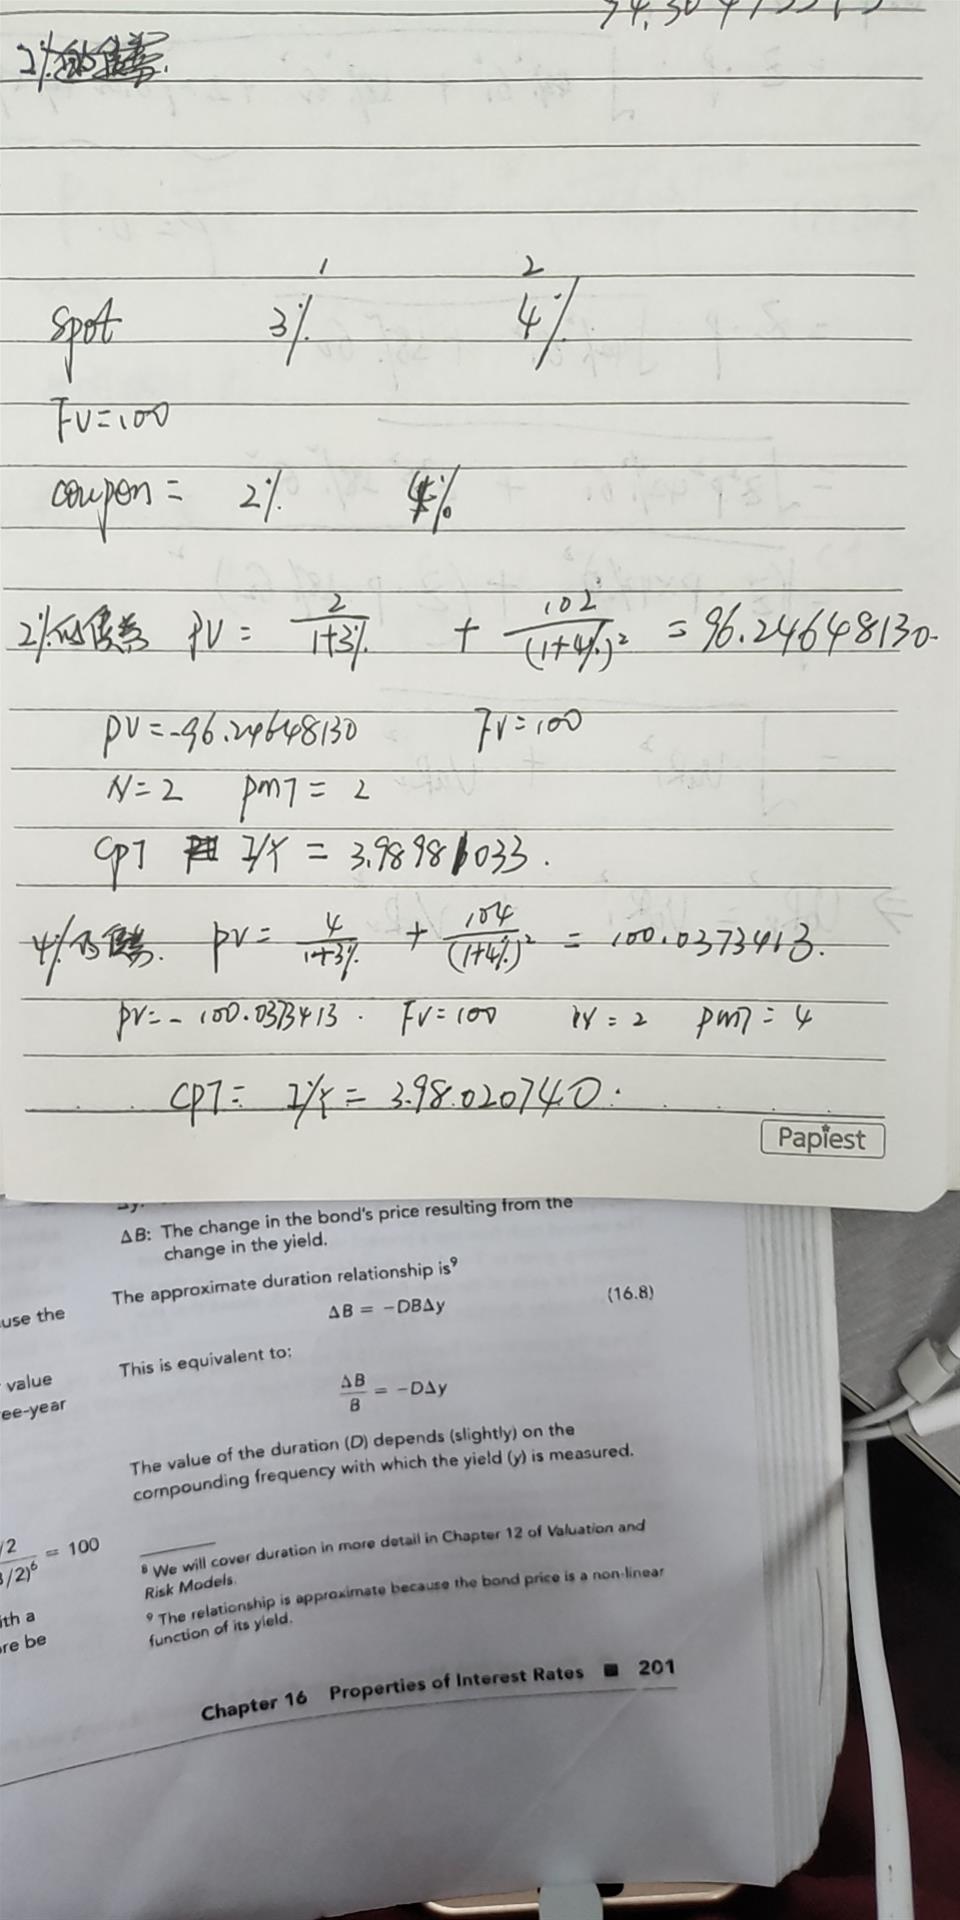 2%的债券.
1 2
Spot 3% 4%
FV=100
coupon= 2% 4%
2%的债券 PV = 2/(1+3%) + 102/(1+4%)² = 96.24648130.
PV=-96.24648130 FV=100
N=2 PMT=2
CPT I/Y = 3.98981033.
4%的债券. PV= 4/(1+3%) + 104/(1+4%)² = 100.0373413.
PV=-100.0373413. FV=100 N=2 PMT=4
CPT= I/Y= 3.98.020740.
Papiest
ΔB: The change in the bond's price resulting from the
change in the yield.
The approximate duration relationship is⁹
ΔB = −DBΔy (16.8)
use the
This is equivalent to:
value
ΔB/B = −DΔy
ee-year
The value of the duration (D) depends (slightly) on the
compounding frequency with which the yield (y) is measured.
/2)⁶ = 100
⁸ We will cover duration in more detail in Chapter 12 of Valuation and
Risk Models.
⁹ The relationship is approximate because the bond price is a non-linear
function of its yield.
ith a
re be
Chapter 16 Properties of Interest Rates ■ 201